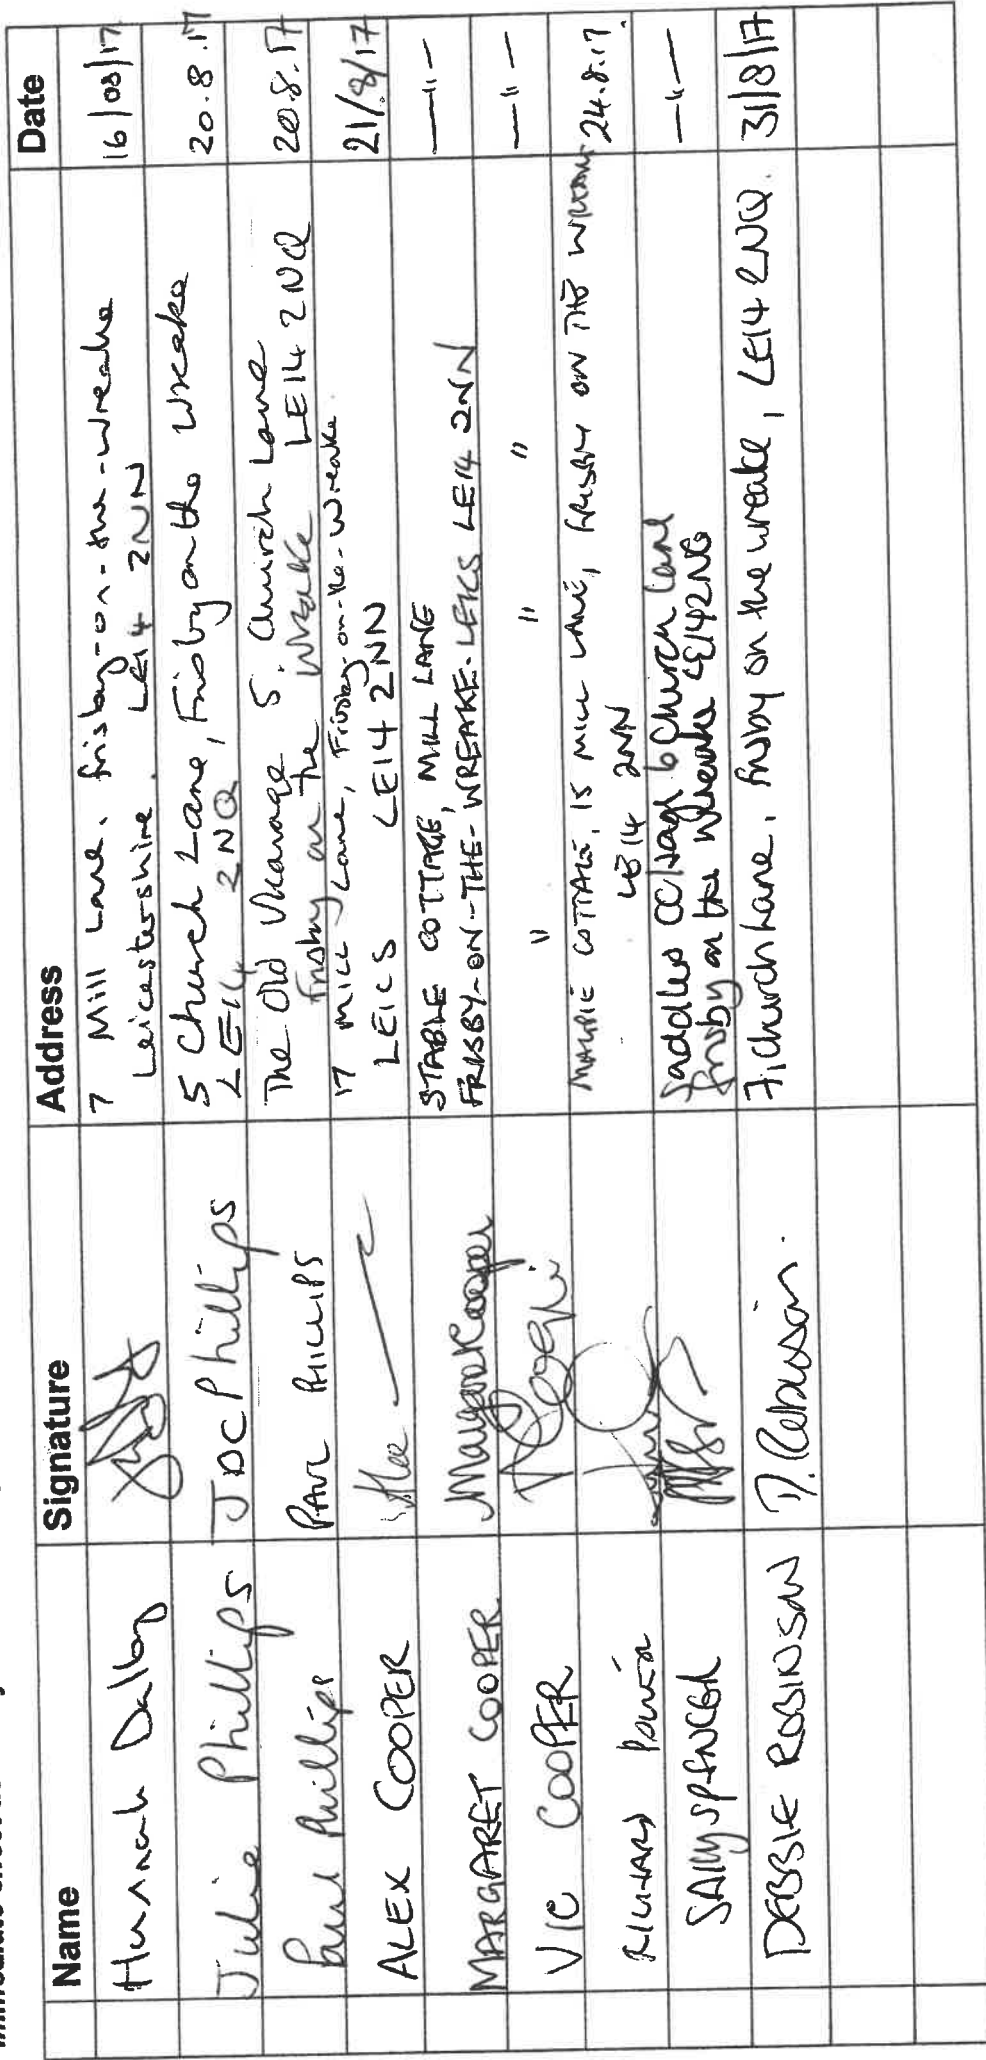 Name Signature Address Date
Hannah Dalby 7 Mill Lane, frisby-on-the-wreake 16/08/17
Leicestershire. LE14 2NN
Julie Phillips JDC Phillips 5 Church Lane, Frisby on the Wreake 20.8.17
LE14 2NQ
Paul Phillips PAUL PHILLIPS The Old Vicarage 5. Church Lane 20.8.17
Frisby on the Wreake LE14 2NQ
ALEX COOPER 17 MILL Lane, Frisby-on-the-Wreake 21/8/17
LEICS LE14 2NN
MARGARET COOPER Margaret Cooper STABLE COTTAGE, MILL LANE —"—
FRISBY-ON-THE-WREAKE. LEICS LE14 2NN
VIC COOPER " " " —"—
RICHARD COTTAGE, 15 MILL LANE, FRISBY ON THE WREAKE 24.8.17.
LE14 2NN
SALLY SPENCER Saddlers Cottage 6 Church Lane —"—
frisby on the Wreake LE142NQ
DEBBIE ROBINSON D. Robinson. 7, Church Lane, Frisby on the wreake, LE14 2NQ. 31/8/17